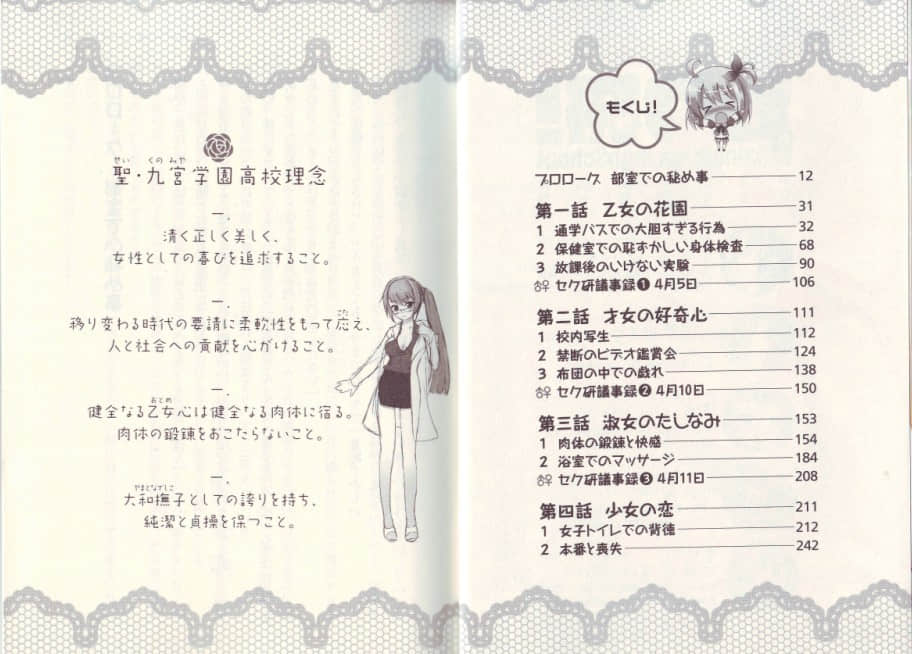 聖・九宮学園高校理念
せい くのみや
一、
清く正しく美しく、
女性としての喜びを追求すること。
一、
移り変わる時代の要請に柔軟性をもって応え、
こた
人と社会への貢献を心がけること。
一、
おとめ
健全なる乙女心は健全なる肉体に宿る。
肉体の鍛錬をおこたらないこと。
一、
やまとなでしこ
大和撫子としての誇りを持ち、
純潔と貞操を保つこと。
もくじ!
プロローグ 部室での秘め事 12
第一話 乙女の花園 31
1 通学バスでの大胆すぎる行為 32
2 保健室での恥ずかしい身体検査 68
3 放課後のいけない実験 90
セク研議事録❶ 4月5日 106
第二話 才女の好奇心 111
1 校内写生 112
2 禁断のビデオ鑑賞会 124
3 布団の中での戯れ 138
セク研議事録❷ 4月10日 150
第三話 淑女のたしなみ 153
1 肉体の鍛錬と快感 154
2 浴室でのマッサージ 184
セク研議事録❸ 4月11日 208
第四話 少女の恋 211
1 女子トイレでの背徳 212
2 本番と喪失 242